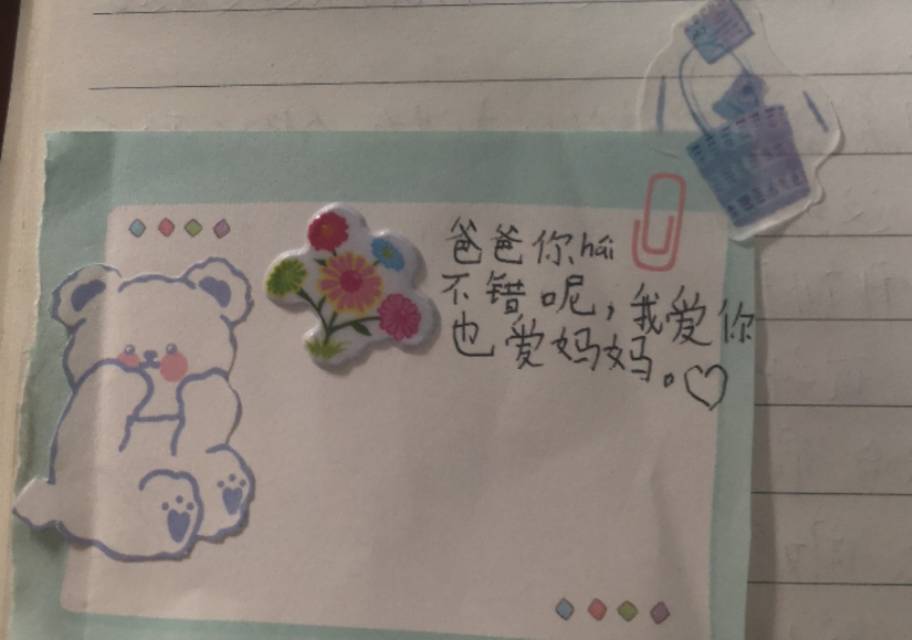 爸爸你hái
不错呢，我爱你
也爱妈妈。♡